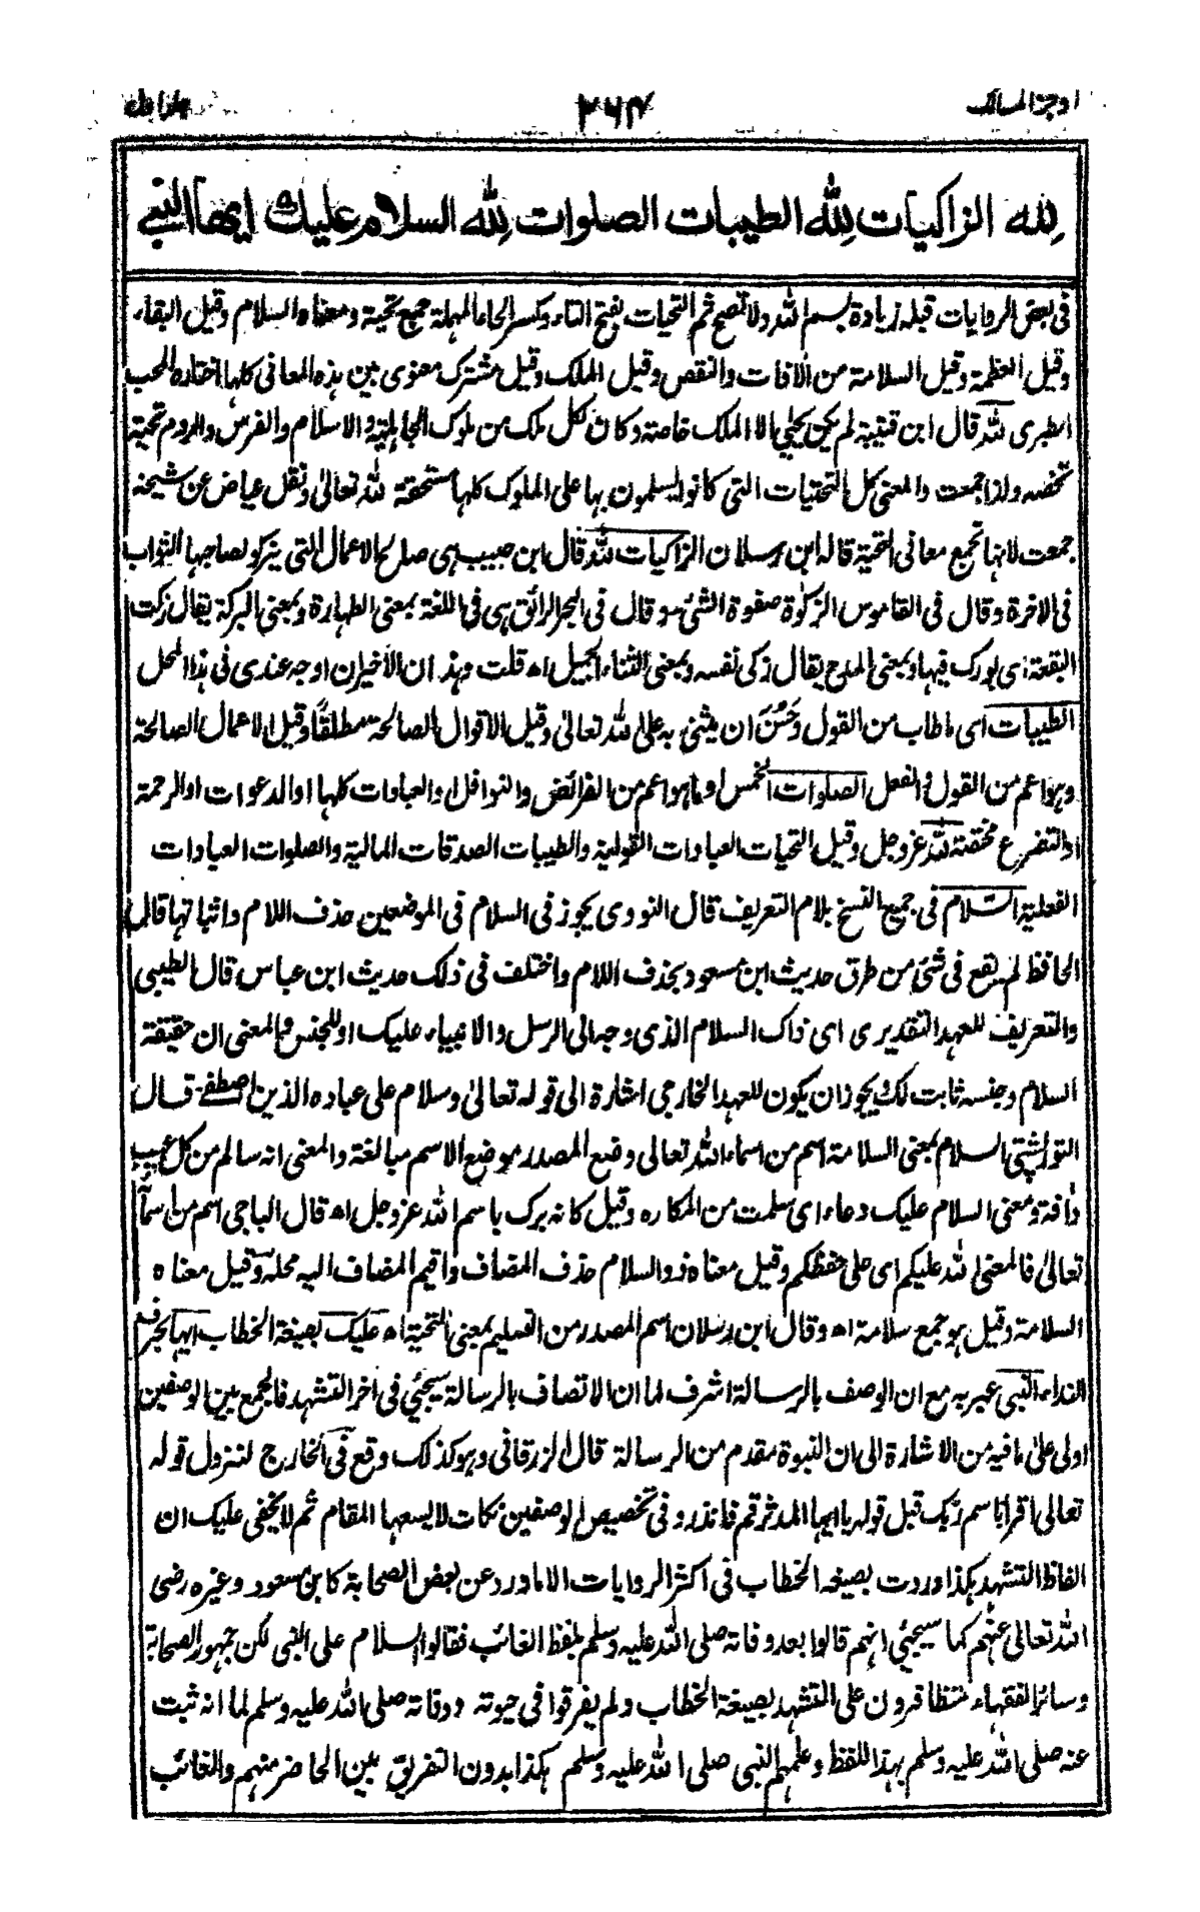 اوجز المسالك ٢٦٣ جلد اول
لله الزاكيات لله الطيبات الصلوات لله السلام عليك ايها النبي
فى بعض الروايات قبله زيادة بسم الله ولا تصح ثم التحيات بفتح التاء وكسر الحاء المهملة جمع تحية ومعناه السلام وقيل البقاء
وقيل العظمة وقيل السلامة من الآفات والنقص وقيل الملك وقيل مشترك معنوى بين هذه المعانى كلها اختاره المحب
الطبرى لله قال ابن قتيبة لم يكن يحيى الا الملك خاصة وكان لكل ملك من ملوك الجاهلية والاسلام والفرس والروم تحية
تخصه ولذا جمعت والمعنى كل التحيات التى كانوا يسلمون بها على الملوك كلها مستحقة لله تعالى ونقل عياض عن شيخه
جمعت لانها تجمع معانى التحية قاله ابن رسلان الزاكيات لله قال ابن حبيب هى صالح الاعمال التى يزكو لصاحبها الثواب
فى الاخرة وقال فى القاموس الزكوة صفوة الشئ وقال فى البحر الرائق هى فى اللغة بمعنى الطهارة وبمعنى البركة يقال زكت
البقعة اى بورك فيها وبمعنى المدح يقال زكى نفسه وبمعنى الثناء الجميل اه قلت وهذان الأخيران اوجه عندى فى هذا المحل
الطيبات اى ما طاب من القول وحسن ان يثنى به على الله تعالى وقيل الأقوال الصالحة مطلقا وقيل الاعمال الصالحة
وهو اعم من القول والفعل الصلوات الخمس او ما هو اعم من الفرائض والنوافل او العبادات كلها او الدعوات او الرحمة
او التضرع مختصة لله عز وجل وقيل التحيات العبادات القولية والطيبات الصدقات المالية والصلوات العبادات
الفعلية السلام فى جميع النسخ بلام التعريف قال النووى يجوز فى السلام فى الموضعين حذف اللام واثباتها قال
الحافظ لم يقع فى شئ من طرق حديث ابن مسعود بحذف اللام واختلف فى ذلك حديث ابن عباس قال الطيبى
والتعريف للعهد التقديرى اى ذاك السلام الذى وجه الى الرسل والانبياء عليك او للجنس والمعنى ان حقيقة
السلام وجنسه ثابت لك يجوز ان يكون للعهد الخارجى اشارة الى قوله تعالى وسلام على عباده الذين اصطفى قال
التورپشتى السلام بمعنى السلامة اسم من اسماء الله تعالى وضع المصدر موضع الاسم مبالغة والمعنى انه سالم من كل عيب
وآفة ومعنى السلام عليك دعاء اى سلمت من المكاره وقيل كانه برك باسم الله عز وجل اه قال الباجى اسم من اسمآ
تعالى فالمعنى الله عليكم اى على حفظكم وقيل معناه ذو السلام حذف المضاف واقيم المضاف اليه محله وقيل معناه
السلامة وقيل هو جمع سلامة اه وقال ابن رسلان اسم المصدر من التسليم بمعنى التحية اه عليك بصيغة الخطاب ايها بحرف
النداء النبى عبر به مع ان الوصف بالرسالة اشرف لما ان الاتصاف بالرسالة سيجئ فى اخر التشهد فالجمع بين الوصفين
اولى على ما فيه من الاشارة الى ان النبوة مقدم من الرسالة قال الزرقانى وهو كذلك وقع فى الخارج لنزول قوله
تعالى اقرا باسم ربك قبل قوله يا ايها المدثر قم فانذر وفى تخصيص الوصفين نكات لا يسعها المقام ثم لا يخفى عليك ان
الفاظ التشهد هكذا وردت بصيغة الخطاب فى اكثر الروايات الا ما ورد عن بعض الصحابة كابن مسعود وغيره رضى
الله تعالى عنهم كما سيجئ انهم قالوا بعد وفاته صلى الله عليه وسلم بلفظ الغائب فقالوا السلام على النبى لكن جمهور الصحابة
وسائر الفقهاء متظافرون على التشهد بصيغة الخطاب ولم يفرقوا فى حيوته ووفاته صلى الله عليه وسلم لما انه ثبت
عنه صلى الله عليه وسلم بهذا اللفظ وعلمهم النبى صلى الله عليه وسلم هكذا بدون التفريق بين الحاضر منهم والغائب